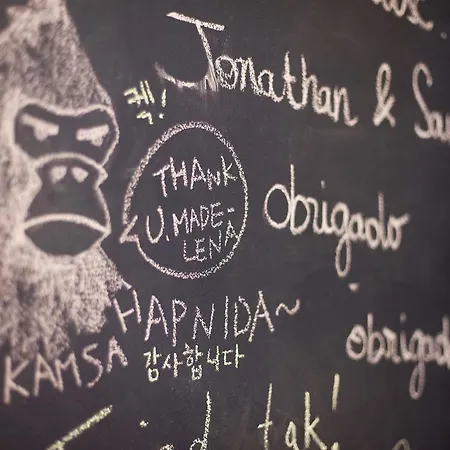 Jonathan &
켁!
THANK
U. MADE-
LENA
Obrigado
KAMSA HAPNIDA~
감사합니다
tak!